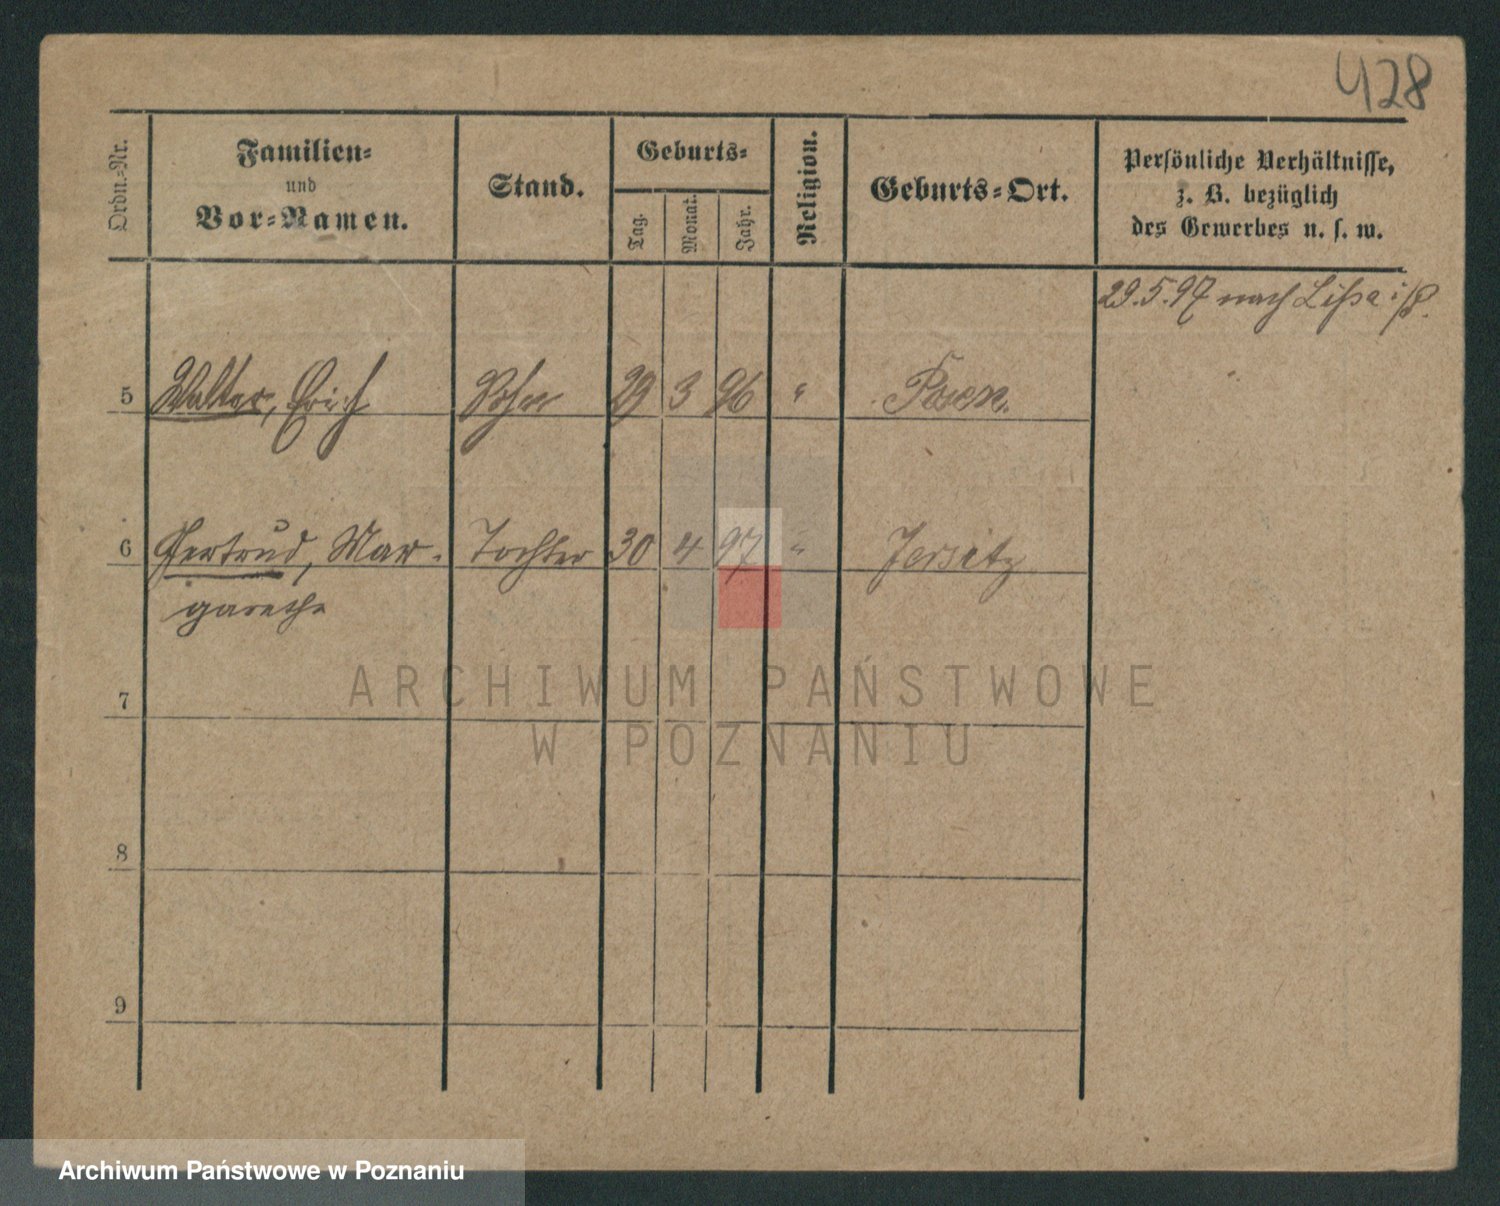 428
Ordn.-Nr.
Familien-
und
Vor-Namen.
Stand.
Geburts-
Tag.
Monat.
Jahr.
Religion.
Geburts-Ort.
Persönliche Verhältnisse,
z. B. bezüglich
des Gewerbes u. s. w.
29.5.97 nach Lissa i/P.
5 Walter, Erich Sohn 29 3 96 " Posen.
6 Gertrud, Mar- Tochter 30 4 97 " Jersitz
garethe
7
8
9
ARCHIWUM PAŃSTWOWE
W POZNANIU
Archiwum Państwowe w Poznaniu